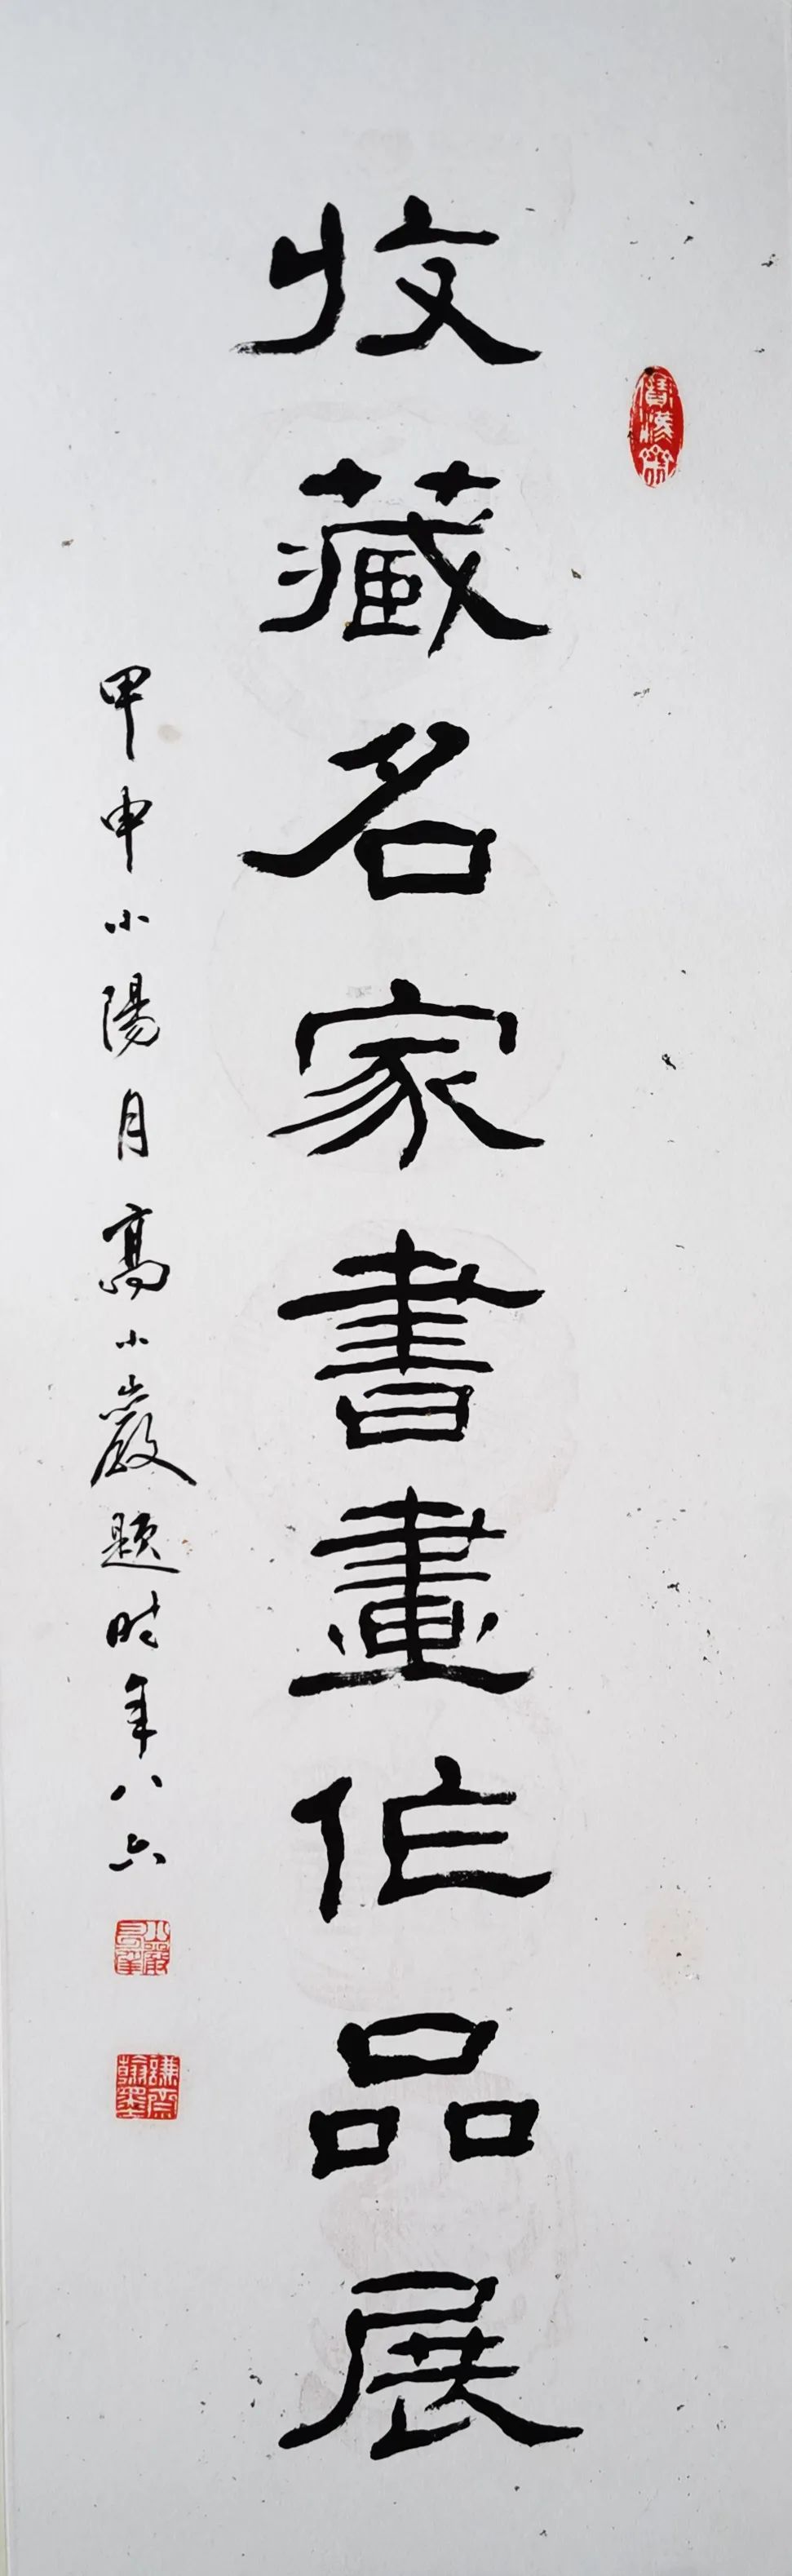 收藏名家書畫作品展
甲申小陽月高小巖題時年八六